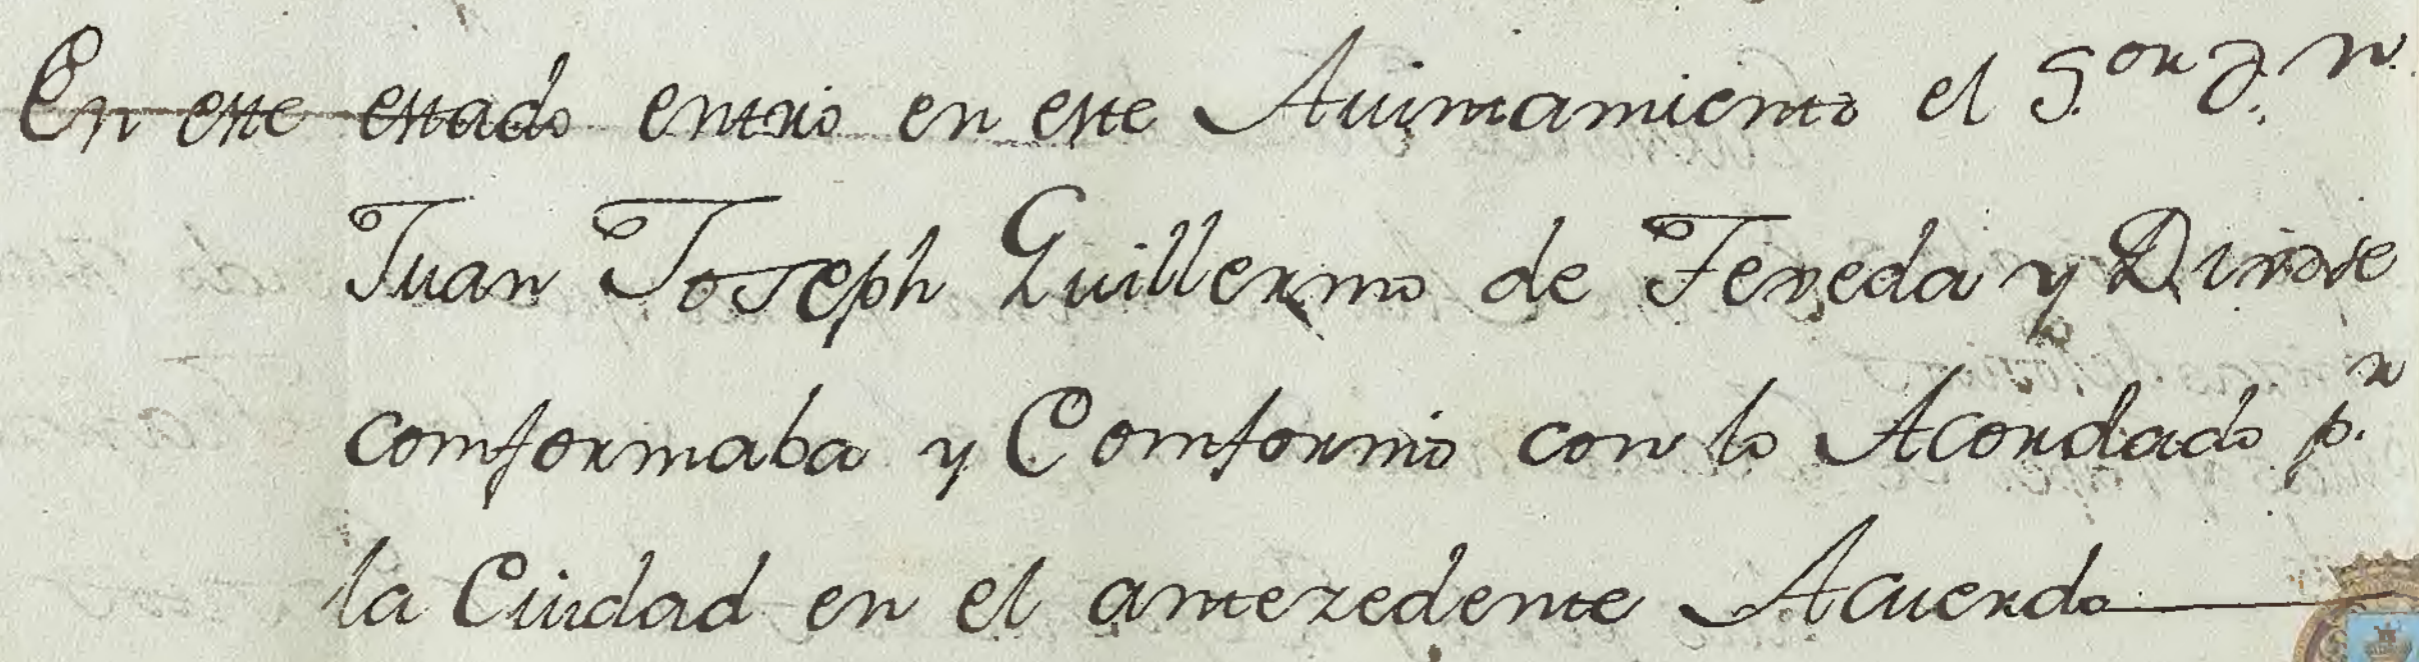 En este estado entrio en este Auintamiento el S.or D.n
Juan Joseph Guillermo de Tereda y Dixose
comformaba y Comformo con lo Acordado p.r
la Ciudad en el antezedente Acuerdo